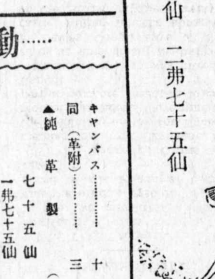 仙 二弗七十五仙
動……
キャンバス…………十
同（革附）…………三
▲純革製
七十五仙
一弗七十五仙